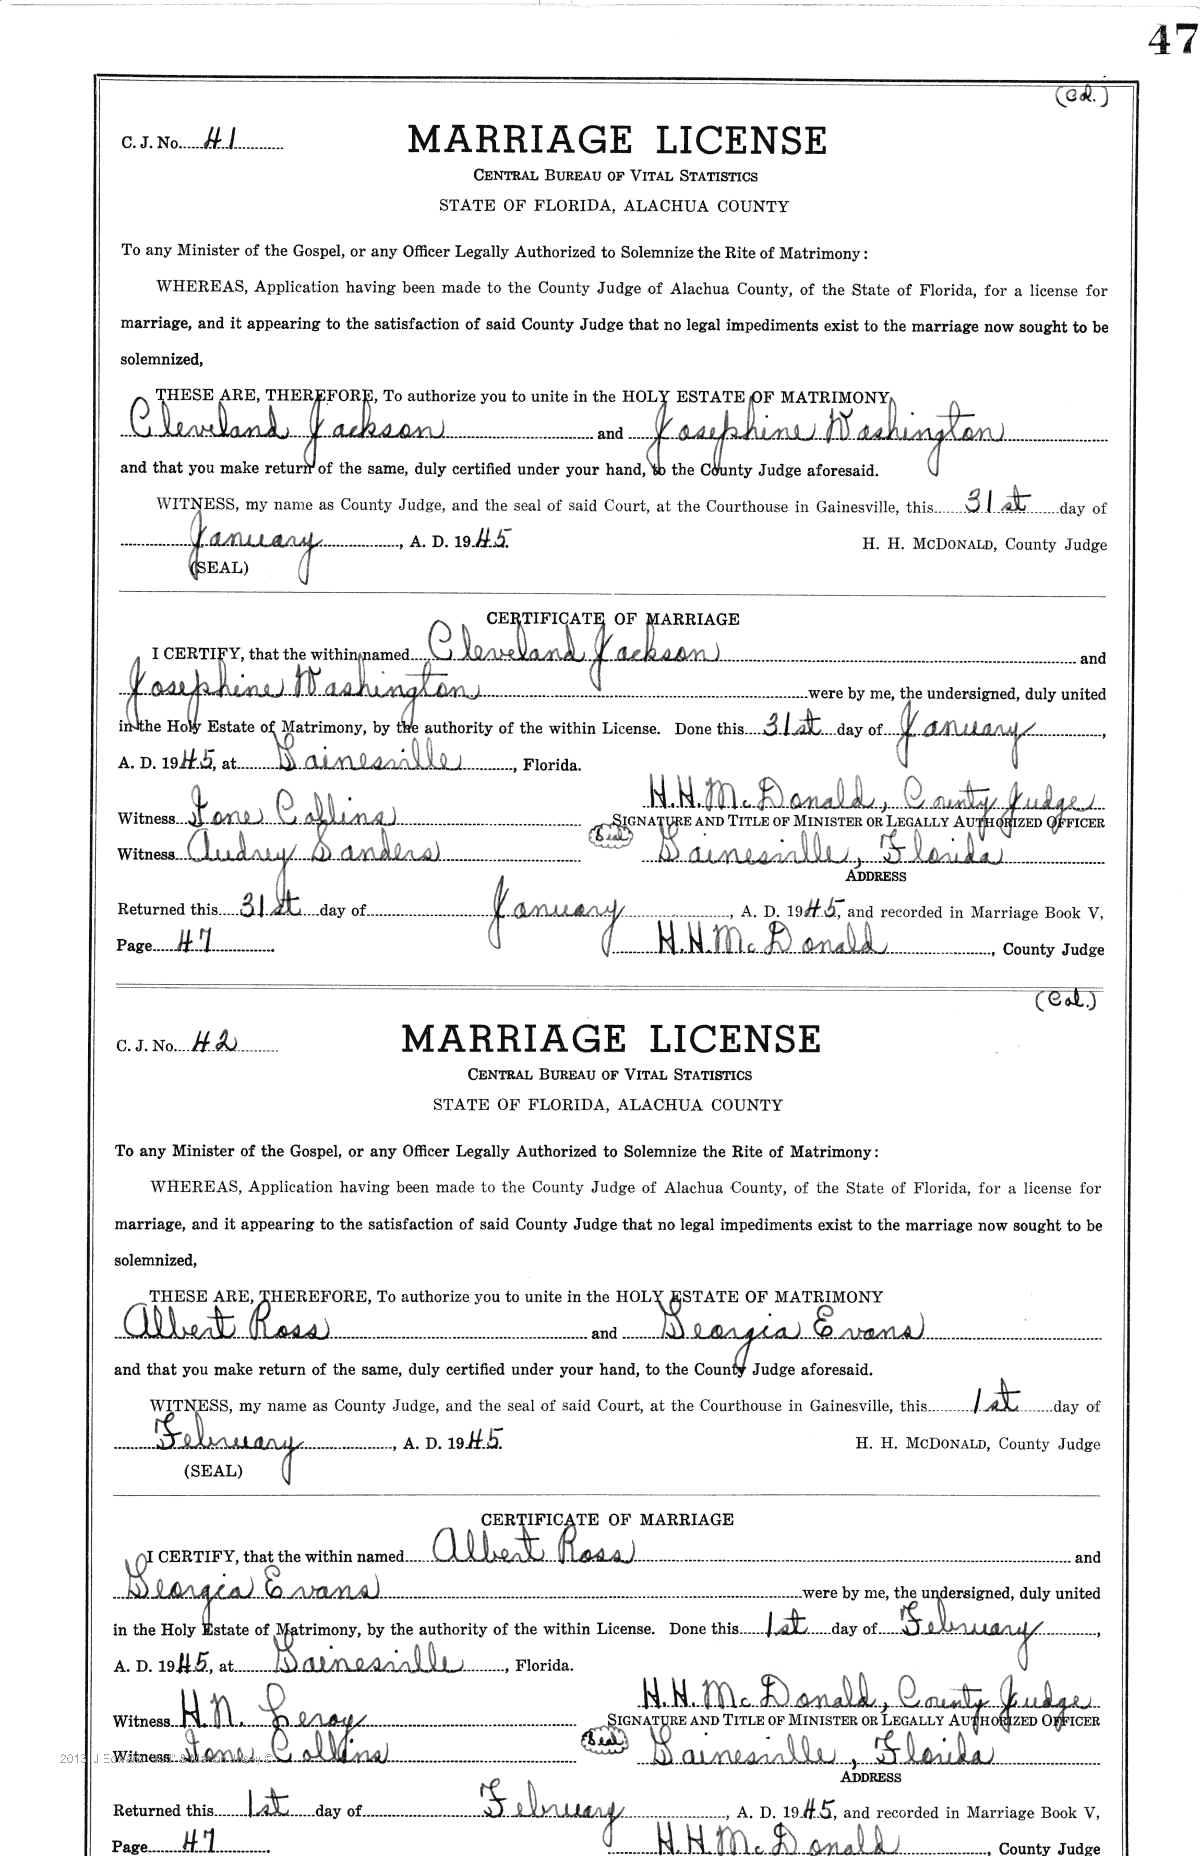 47
(Col.)
C. J. No. 41
MARRIAGE LICENSE
CENTRAL BUREAU OF VITAL STATISTICS
STATE OF FLORIDA, ALACHUA COUNTY
To any Minister of the Gospel, or any Officer Legally Authorized to Solemnize the Rite of Matrimony:
WHEREAS, Application having been made to the County Judge of Alachua County, of the State of Florida, for a license for
marriage, and it appearing to the satisfaction of said County Judge that no legal impediments exist to the marriage now sought to be
solemnized,
THESE ARE, THEREFORE, To authorize you to unite in the HOLY ESTATE OF MATRIMONY
Cleveland Jackson and Josephine Washington
and that you make return of the same, duly certified under your hand, to the County Judge aforesaid.
WITNESS, my name as County Judge, and the seal of said Court, at the Courthouse in Gainesville, this 31st day of
January, A. D. 1945. H. H. MCDONALD, County Judge
(SEAL)
CERTIFICATE OF MARRIAGE
I CERTIFY, that the within named Cleveland Jackson and
Josephine Washington were by me, the undersigned, duly united
in the Holy Estate of Matrimony, by the authority of the within License. Done this 31st day of January,
A. D. 1945, at Gainesville, Florida.
H.H. McDonald, County Judge
Witness Ione Collins SIGNATURE AND TITLE OF MINISTER OR LEGALLY AUTHORIZED OFFICER
Witness Audrey Sanders Seal Gainesville, Florida
ADDRESS
Returned this 31st day of January, A. D. 1945, and recorded in Marriage Book V,
Page 47 H.H. McDonald, County Judge
(Col.)
C. J. No. 42
MARRIAGE LICENSE
CENTRAL BUREAU OF VITAL STATISTICS
STATE OF FLORIDA, ALACHUA COUNTY
To any Minister of the Gospel, or any Officer Legally Authorized to Solemnize the Rite of Matrimony:
WHEREAS, Application having been made to the County Judge of Alachua County, of the State of Florida, for a license for
marriage, and it appearing to the satisfaction of said County Judge that no legal impediments exist to the marriage now sought to be
solemnized,
THESE ARE, THEREFORE, To authorize you to unite in the HOLY ESTATE OF MATRIMONY
Albert Ross and Georgia Evans
and that you make return of the same, duly certified under your hand, to the County Judge aforesaid.
WITNESS, my name as County Judge, and the seal of said Court, at the Courthouse in Gainesville, this 1st day of
February, A. D. 1945. H. H. MCDONALD, County Judge
(SEAL)
CERTIFICATE OF MARRIAGE
I CERTIFY, that the within named Albert Ross and
Georgia Evans were by me, the undersigned, duly united
in the Holy Estate of Matrimony, by the authority of the within License. Done this 1st day of February,
A. D. 1945, at Gainesville, Florida.
H.H. McDonald, County Judge
Witness H.N. Leroy SIGNATURE AND TITLE OF MINISTER OR LEGALLY AUTHORIZED OFFICER
Witness Ione Collins Seal Gainesville, Florida
2013
ADDRESS
Returned this 1st day of February, A. D. 1945, and recorded in Marriage Book V,
Page 47 H.H. McDonald, County Judge